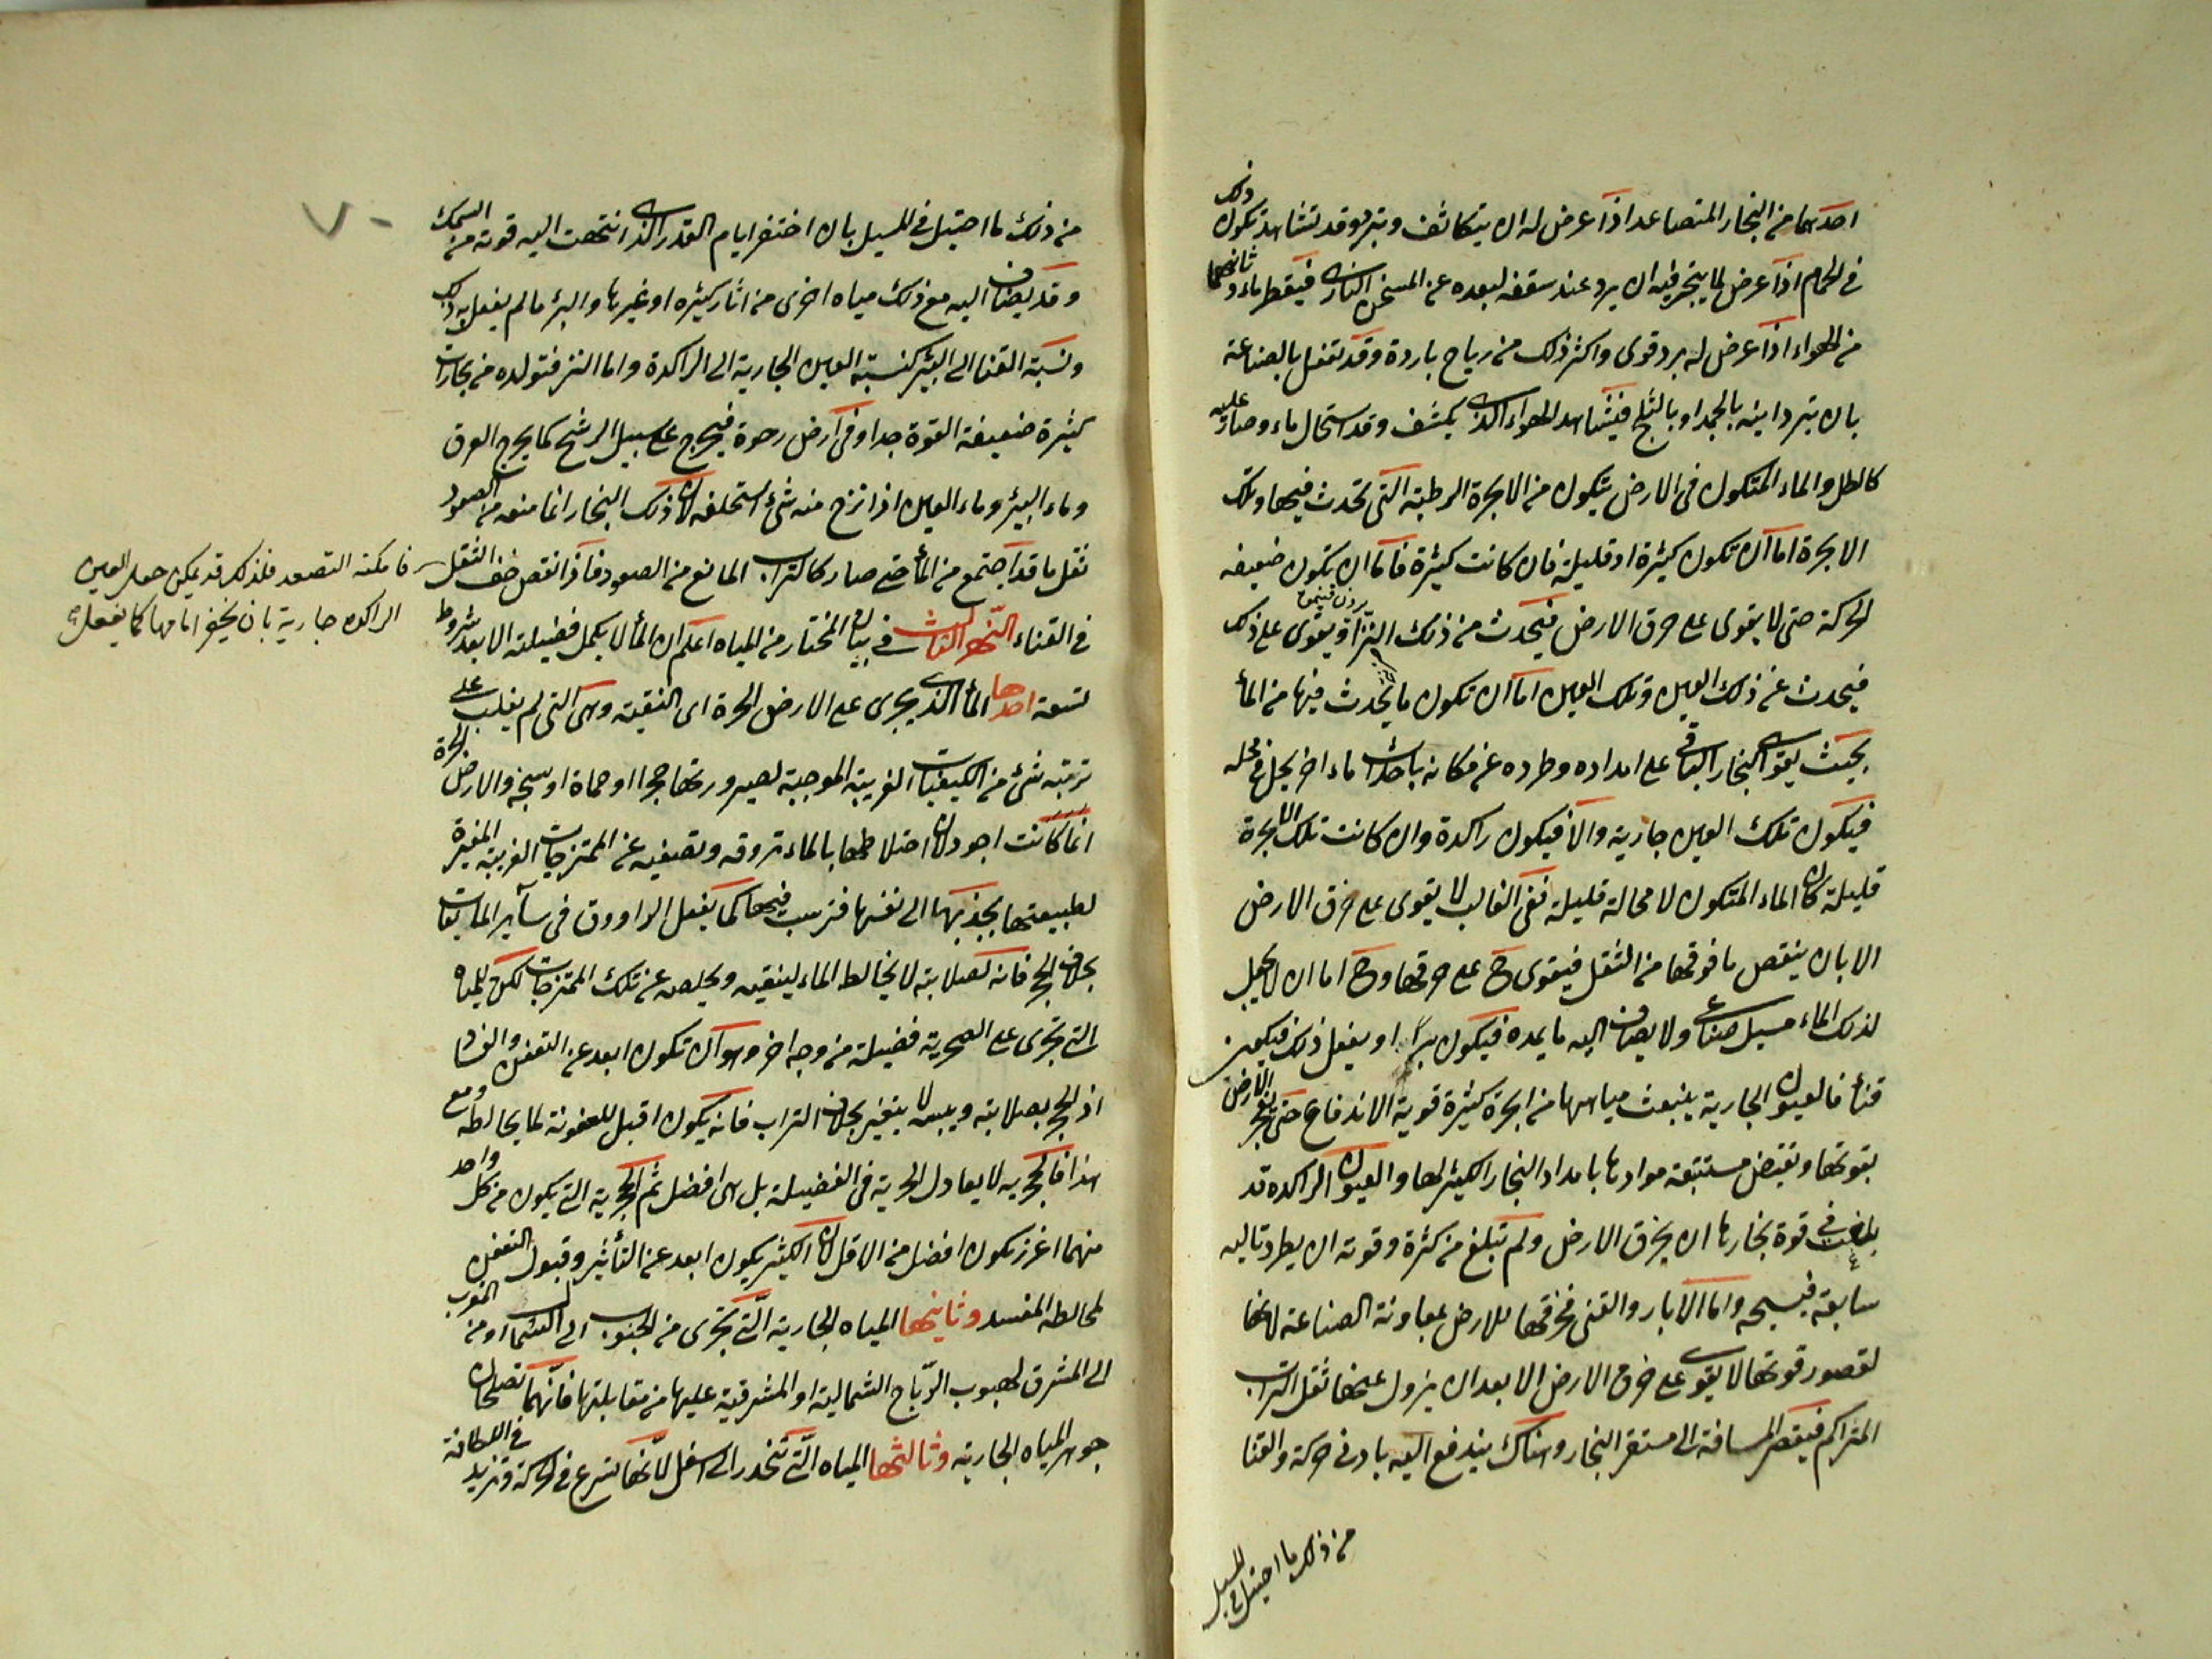 احدهما من البخار المتصاعد اذا عرض له ان يتكاثف ويتبرد وقد تشاهد تكون ذلك
في الحمام اذا عرض لما يتبخر فيه ان يبرد عند سقفه لبعده عن المسخن الناري فيقطر ماء وثانيهما
من الهواء اذا عرض له برد قوي واكثر ذلك من رياح باردة وقد تفعل بالصناعة
بان تبرد اينه بالجمد او بالثلج فيشاهد الهواء الذي يكثف وقد استحال ماء وصار عليه
كالطل والماء المتكون في الارض يتكون من الابخرة الرطبة التي تحدث فيها وتلك
الابخرة اما ان تكون كثيرة او قليلة فان كانت كثيرة فاما ان تكون ضعيفه
الحركة حتى لا يقوى على خرق الارض فيحدث من ذلك النز او يقوى على ذلك
فيحدث عن ذلك العيون وتلك العيون اما ان تكون ما يحدث فيها من الماء
بحيث يقوى البخار الباقي على امداده وطرده عن مكانه باحداث ماء اخر يحل في محله
فيكون تلك العيون جارية والا فيكون راكدة وان كانت تلك الابخرة
قليلة كان الماء المتكون لا محالة قليلة ففي الغالب لا يقوى على خرق الارض
الا بان ينقص ما فوقها من الثقل فيقوى ح على خرقها وح اما ان لا يجعل
لذلك الماء مسيل صناعي ولا يضاف اليه ما يمده فيكون بيرا او يفعل ذلك فيكون
قناة فالعيون الجارية ينبعث مياهها من ابخرة كثيرة قوية الاندفاع حتى تفجر الارض
بقوتها ويفيض مستتبعة موادها بامداد البخار الكثير لها والعيون الراكده قد
بلغت في قوة بخارها ان يخرق الارض ولم تبلغ من كثرة وقوته ان يطرد تاليه
سابقه فيسيحه واما الابار والقنى فخرقها للارض بمعاونة الصناعة لانها
لقصور قوتها لا يقوى على خرق الارض الا بعد ان يزول عنها ثقل التراب
المتراكم فيقصر المسافة الى مستقر البخار وهناك يندفع اليه بادنى حركة والقنا
من ذلك ما احتيل في المسيل
من ذلك ما احتيل في المسيل بان احتفر ايام القدر الذي انتهت اليه قوته من السمك
وقد يضاف اليه مع ذلك مياه اخرى من اثار كثيره او غيرها والبئر ما لم يفعل به ذلك
ونسبة القنا الى البئر كنسبة العيون الجارية الى الراكدة واما النز فتولده من بخارات
كثيرة ضعيفة القوة جدا وفي ارض رخوة فيخرج على سبيل الرشح كما يخرج العرق
وماء البئر وماء العيون اذا نزح منه شئ استخلف لان ذلك البخار انما منعه من الصعود
ثقل ما قد اجتمع من الماء حتى صار كالتراب المانع من الصعود فاذا نقص خف الثقل
فامكنه التصعد فلذلك قد يمكن جعل العيون
الراكده جارية بان يحفر امامها كما يفعل
في القناء النهر الثالث في بيان المختار من المياه اعلم ان الماء لا يكمل فضيلته الا بعد شروط
تسعة احدها الماء الذي يجري على الارض الحرة اى النقية وهى التي لم يغلب على
تربته شئ من الكيفيات الغريبة الموجبة لصيرورتها حجرا او حماة او سبخه والارض الحرة
انما كانت اجود لان اختلاطها بالماء تروقه وتصفيه عن الممتزجات الغريبة المغيرة
لطبيعتها بجذبها الى نفسها فترسب فيها كما يفعل الراووق في سآير المايعات
بخلاف الحجر فانه لصلابته لا يخالط الماء لينقيه ويخلصه عن تلك الممتزجات لكن للمياه
التي تجري على الصخرية فضيلة من وجه اخر وهو ان تكون ابعد عن التعفن والفساد
اذ الحجر بصلابته ويبسه لا يتغير بخلاف التراب فانه يكون اقبل للعفونة لما يخالطه ومع
هذا فالحجريه لا يعادل الحرية في الفضيلة بل هى افضل ثم الحجرية التي يكون من كل واحد
منهما اغزر يكون افضل من الاقل لان الكثير يكون ابعد عن التأثير وقبول التعفن
لمخالطه المفسد وثانيها المياه الجارية التي تجري من الجنوب الى الشمال او من المغرب
الى المشرق لهبوب الرياح الشمالية او المشرقية عليها من مقابلتها فانهما تصلحان
جوهر المياه الجارية وثالثها المياه التي تنحدر الى اسفل لانها تسرع في الحركة وتزيد في اللطافة